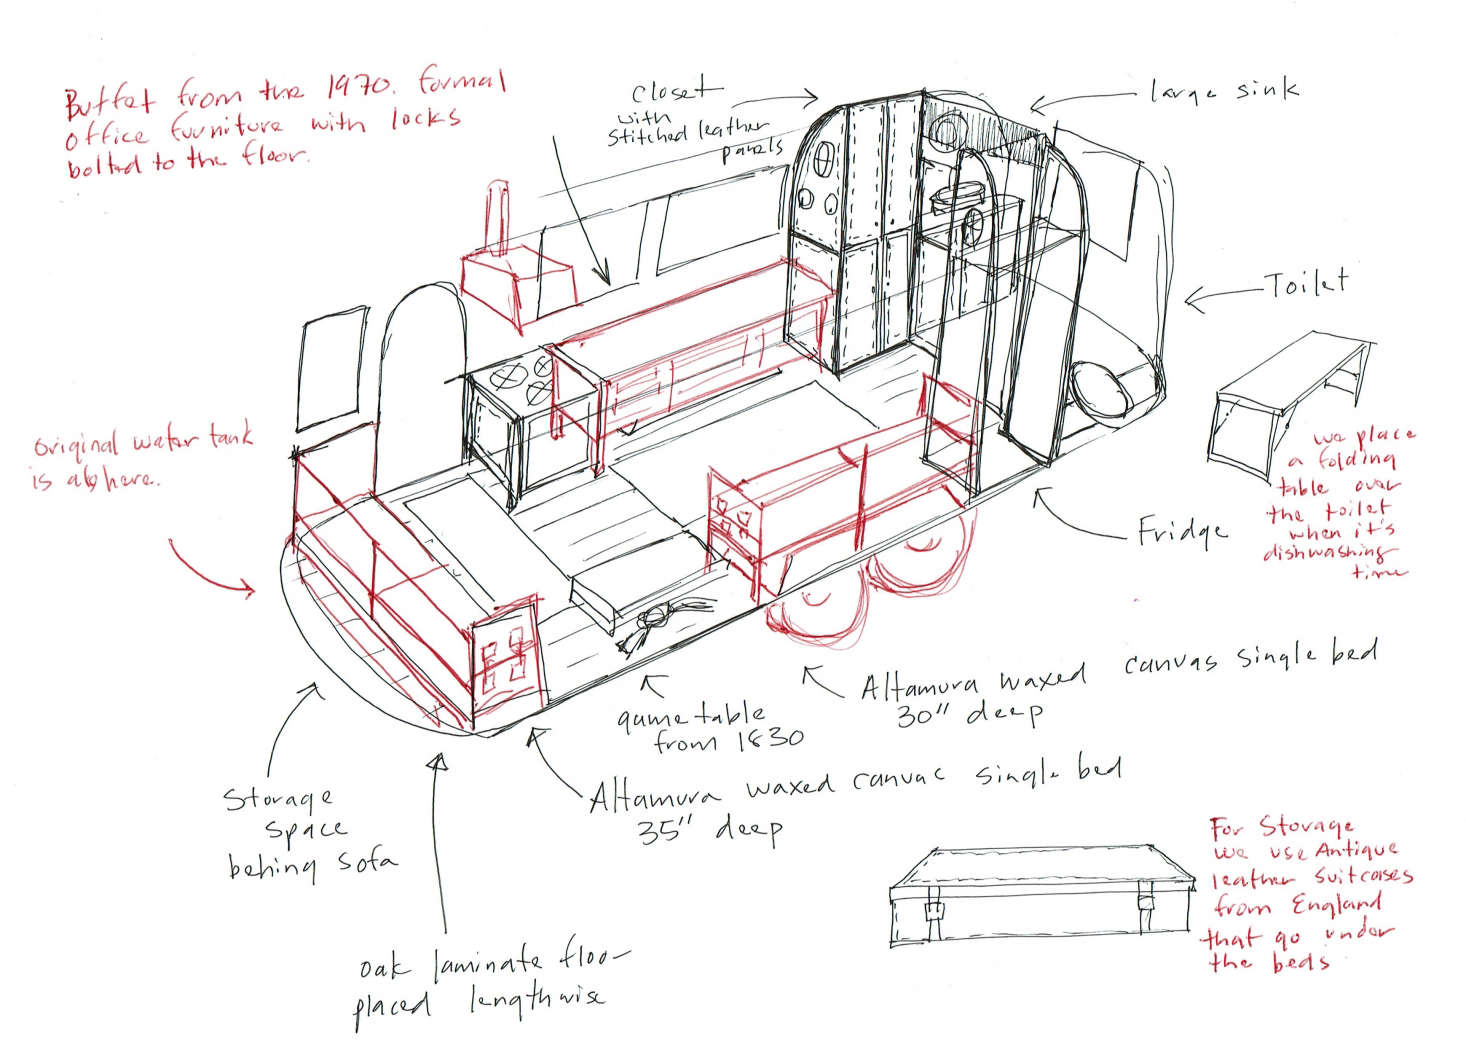 Buffet from the 1970. formal
office furniture with locks
bolted to the floor.
closet
with
stitched leather
panels
large sink
Toilet
we place
a folding
table over
the toilet
when it's
dishwashing
time
Fridge
original water tank
is also here.
Altamura waxed canvas single bed
30" deep
game table
from 1830
Altamura waxed canvac single bed
35" deep
Storage
space
behing sofa
oak laminate floor
placed lengthwise
For Storage
we use Antique
leather suitcases
from England
that go under
the beds